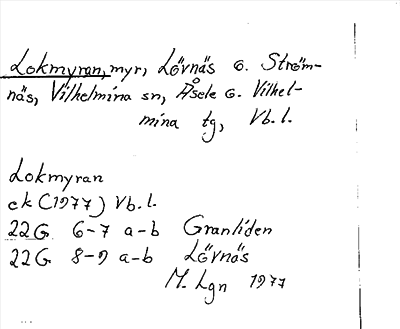 Lokmyran, myr, Lövnäs o. Ström-
näs, Vilhelmina sn, Åsele o. Vilhel-
mina tg, Vb.l.
Lokmyran
ek (1977) Vb.l.
22G 6-7 a-b Granliden
22G 8-9 a-b Lövnäs
M. Lgn 1977